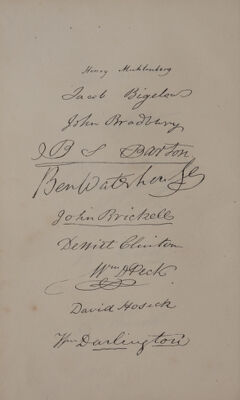 Henry Muhlenberg
Jacob Bigelow
John Bradbury
B S Barton
Ben Waterhouse
John Brickell
DeWitt Clinton
Wm D Peck
David Hosack
Wm Darlington